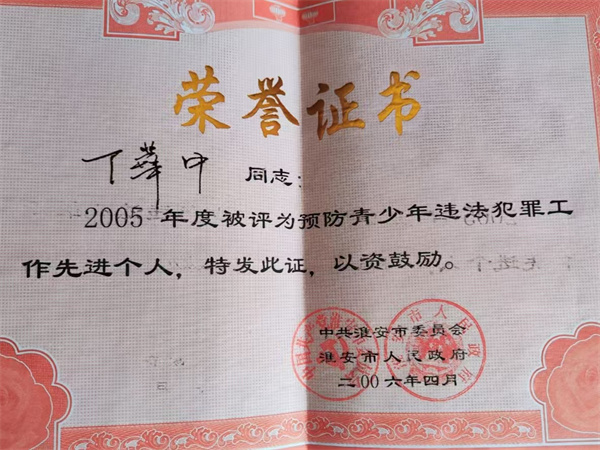 荣誉证书
丁華中 同志:
2005 年度被评为预防青少年违法犯罪工
作先进个人, 特发此证, 以资鼓励。
中共淮安市委员会
淮安市人民政府
二00六年四月